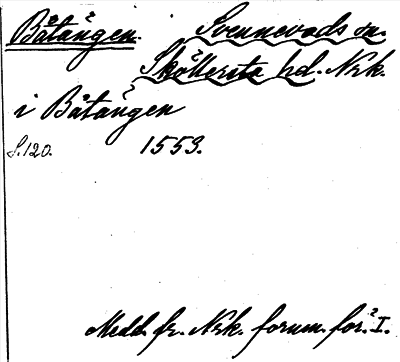 Båtängen. Svennevads sn.
Sköllersta hd. Nrk.
i Båtängen
S. 120. 1553.
Medd. fr. Nrk. fornm. för. I.